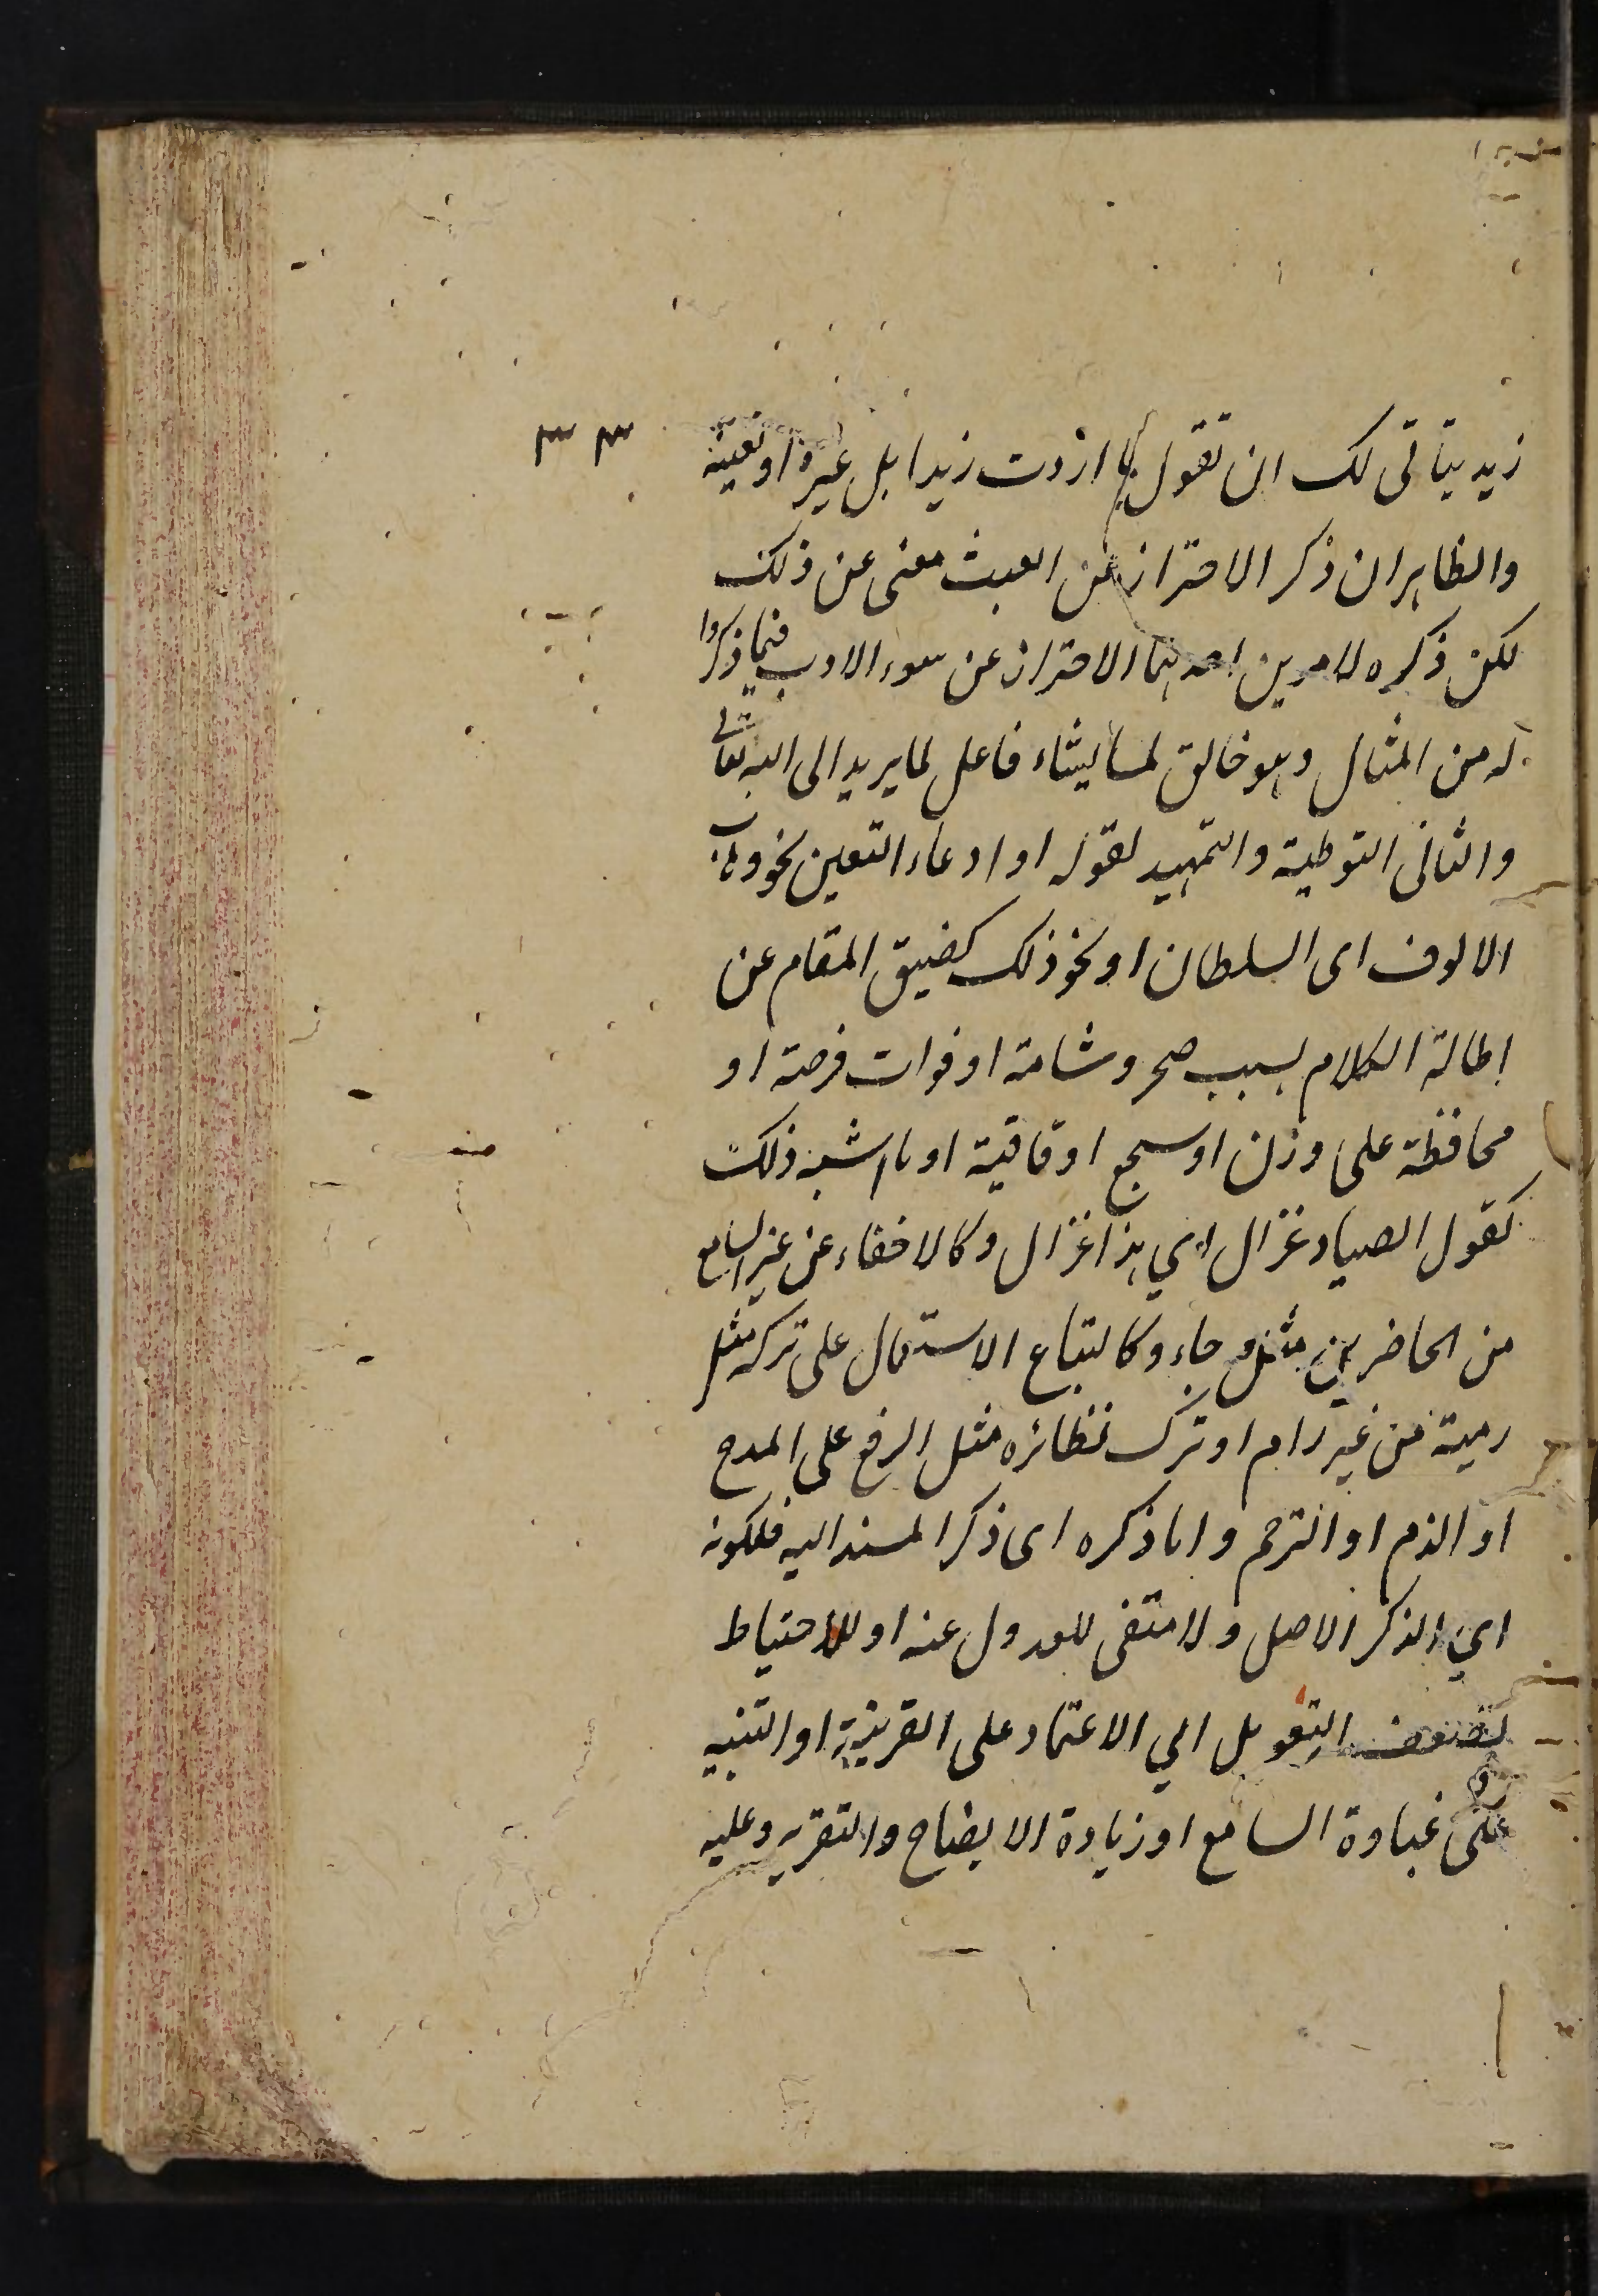 ٣٣
زيد يتأتى لك ان تقول ما اردت زيدا بل غيره او تعينه
والظاهر ان ذكر الاحتراز عن العبث مغنى عن ذلك
لكن ذكره لامرين احدهما الاحتراز عن سوء الادب فيما ذكروا
له من المثال وهو خالق لما يشاء فاعل لما يريد الى الله تعالى
والثانى التوطية والتمهيد لقوله او ادعاء التعين نحو وهاب
الالوف اى السلطان او نحو ذلك كضيق المقام عن
اطالة الكلام بسبب ضجر وشامة او فوات فرصة او
محافظة على وزن او سجع او قافية او ما اشبه ذلك
كقول الصياد غزال اي هذا غزال وكالاخفاء عن غير السامع
من الحاضرين مثل جاء وكاتباع الاستعمال على تركه مثل
رمية من غير رام او ترك نظائره مثل الرفع على المدح
او الذم او الترحم واما ذكره اى ذكر المسند اليه فلكونه
اي الذكر الاصل ولا مقتضى للعدول عنه او للاحتياط
لضعف التعويل اي الاعتماد على القرينة او التنبيه
على غباوة السامع او زيادة الايضاح والتقرير وعليه